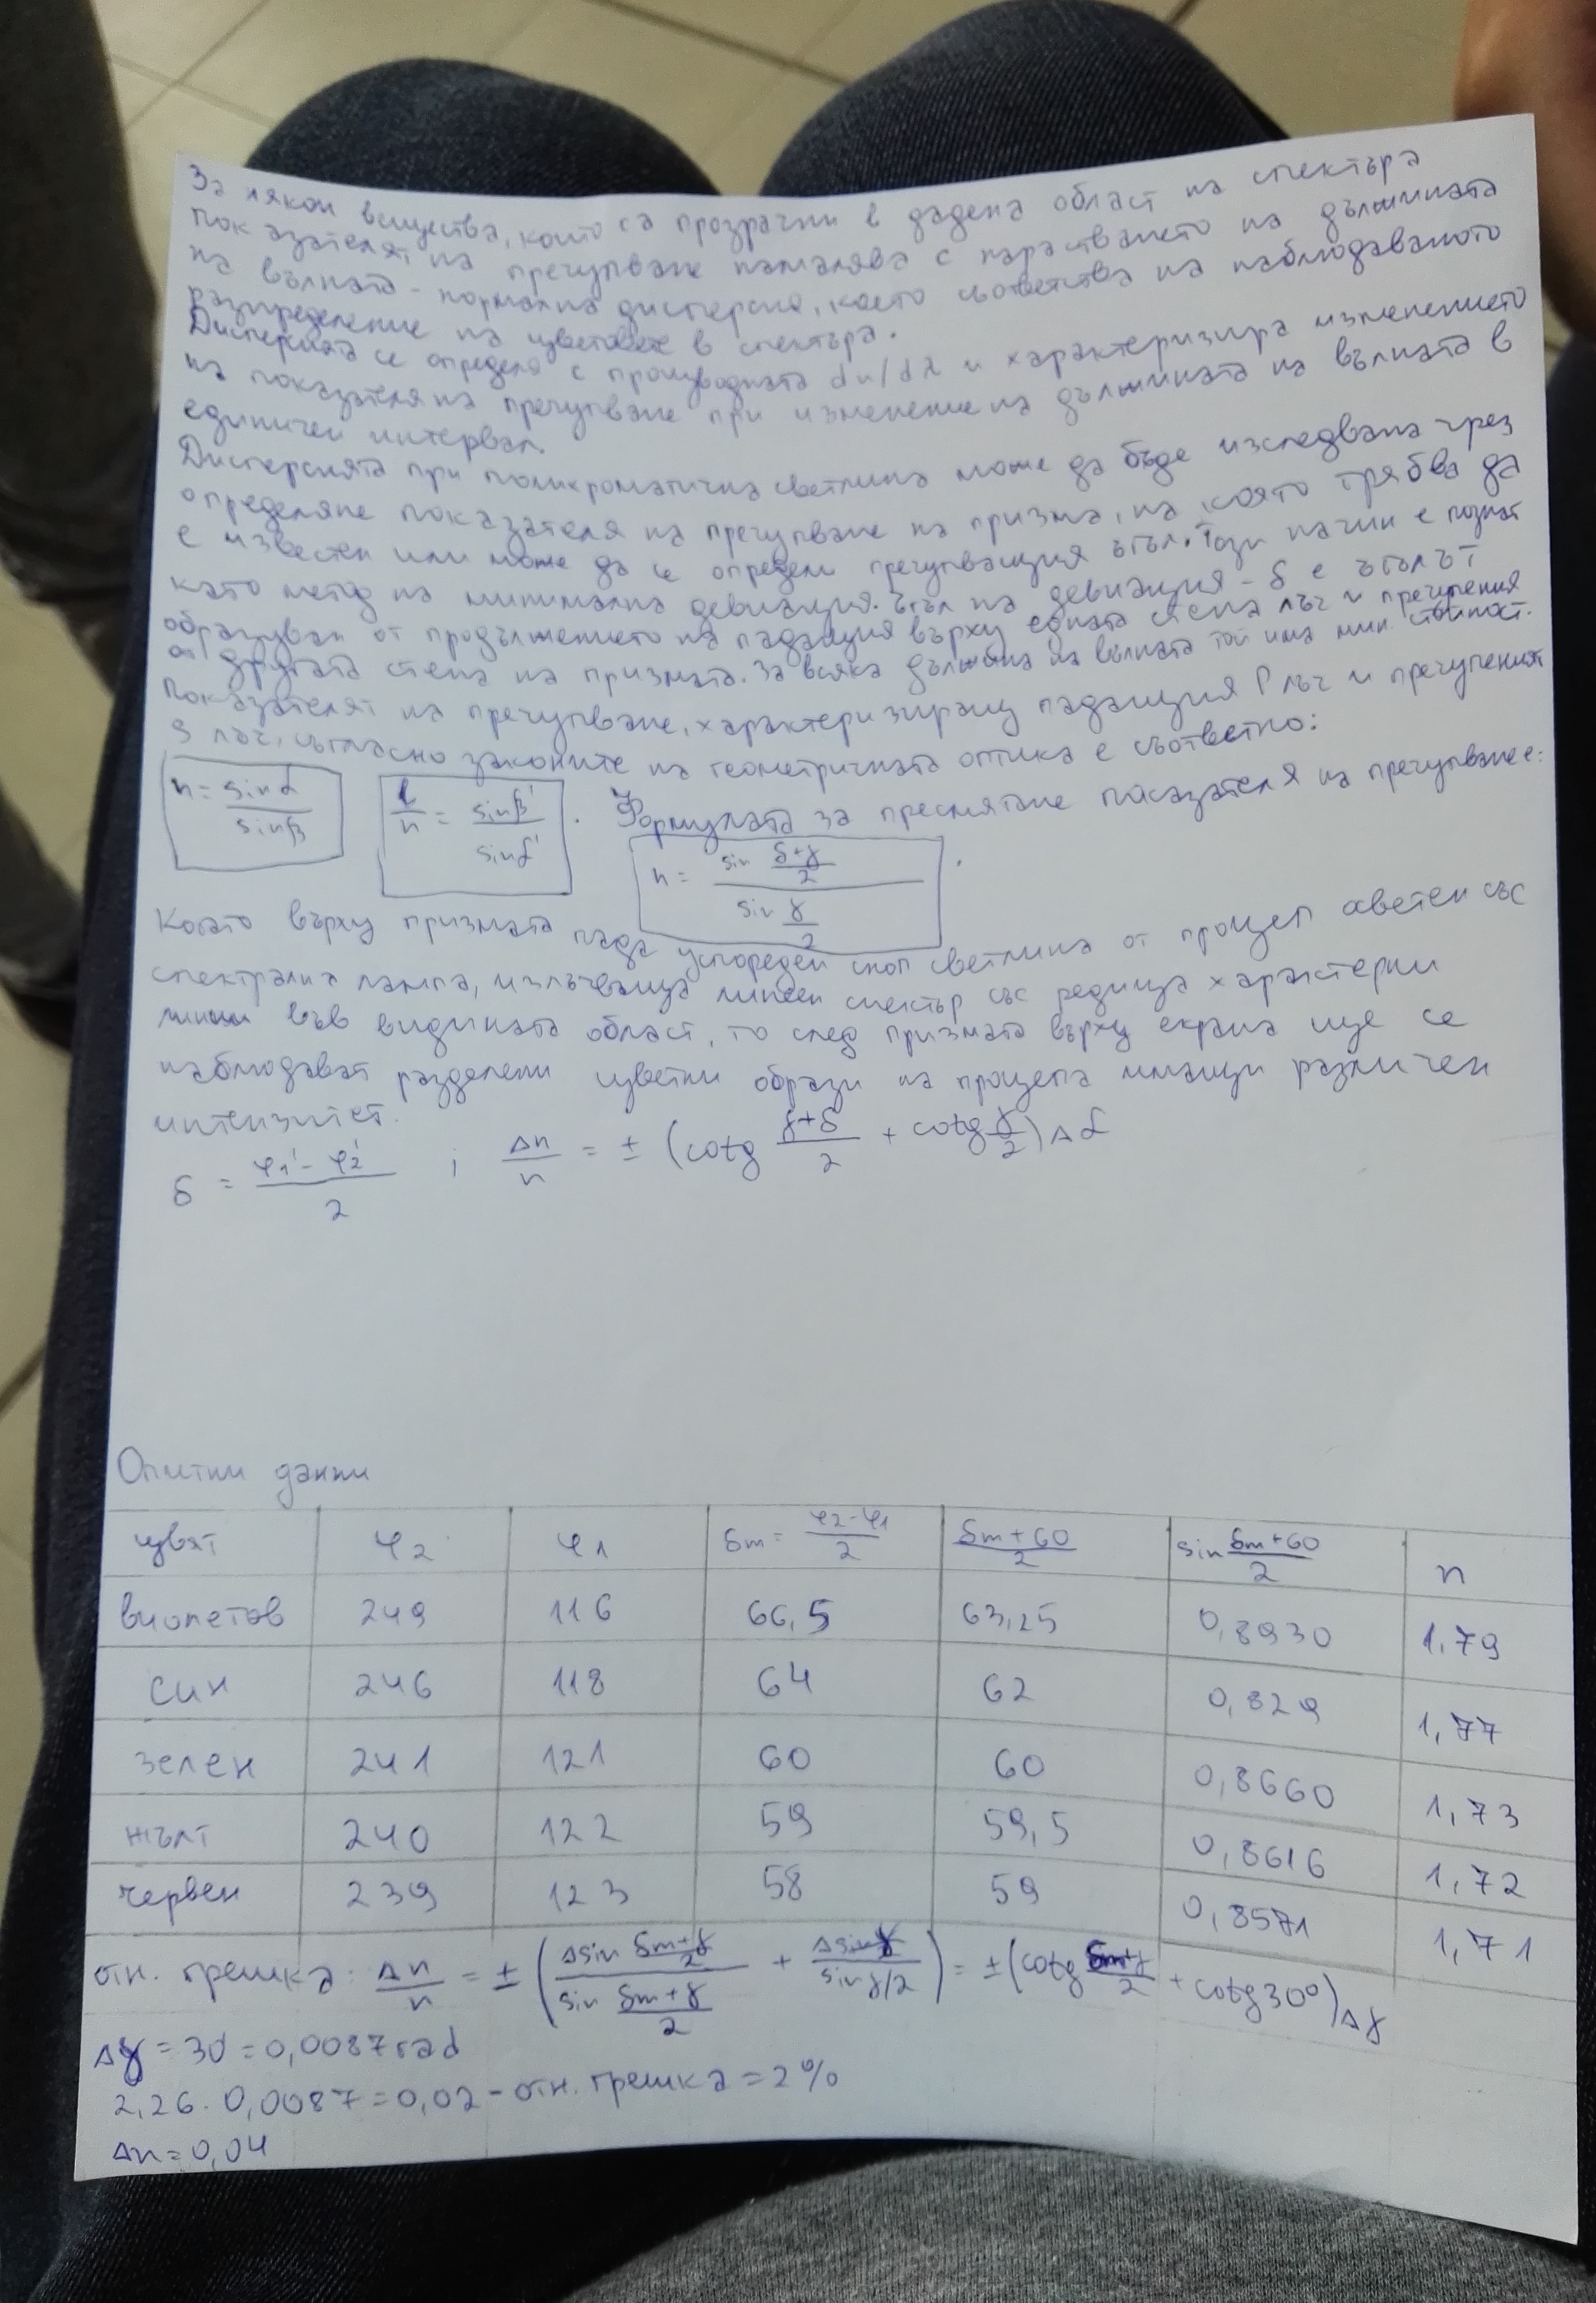 За някои вещества, които са прозрачни в дадена област на спектъра
показателят на пречупване намалява с нарастването на дължината
на вълната - нормална дисперсия, което съответства на наблюдаваното
разпределение на цветовете в спектъра.
Дисперсията се определя с производната dn/dλ и характеризира изменението
на показателя на пречупване при изменение на дължината на вълната в
единичен интервал.
Дисперсията при полихроматична светлина може да бъде изследвана чрез
определяне показателя на пречупване на призма, на която трябва да
е известен или може да се определи пречупващия ъгъл. Този начин е познат
като метод на минимална девиация. Ъгъл на девиация - δ е ъгълът
образуван от продължението на падащия върху едната стена лъч и пречупения
от другата стена на призмата. За всяка дължина на вълната той има мин. стойност.
Показателят на пречупване, характеризиращ падащия P лъч и пречупеният
S лъч, съгласно законите на геометричната оптика е съответно:
n = sinα / sinβ   1/n = sinβ' / sinα' . Формулата за пресмятане показателя на пречупване е:
n = sin (δ+γ)/2 / sin γ/2 .
Когато върху призмата пада успореден сноп светлина от процеп осветен със
спектрална лампа, излъчваща линеен спектър със редица характерни
линии във видимата област, то след призмата върху екрана ще се
наблюдават разделени цветни образи на процепа имащи различен
интензитет.
δ = (φ1' - φ2') / 2 ; Δn/n = ± (cotg (γ+δ)/2 + cotg γ/2) Δα
Опитни данни
цвят φ2 φ1 δm = (φ2-φ1)/2 (δm+60)/2 sin (δm+60)/2 n
виолетов 249 116 66,5 63,25 0,8930 1,79
син 246 118 64 62 0,829 1,77
зелен 241 121 60 60 0,8660 1,73
жълт 240 122 59 59,5 0,8616 1,72
червен 239 123 58 59 0,8571 1,71
отн. грешка: Δn/n = ± (Δsin (δm+γ)/2 / sin (δm+γ)/2 + Δsinγ / sinγ/2) = ± (cotg (δm+γ)/2 + cotg30°) Δγ
Δγ = 30' = 0,0087rad
2,26 . 0,0087 = 0,02 - отн. грешка = 2%
Δn = 0,04